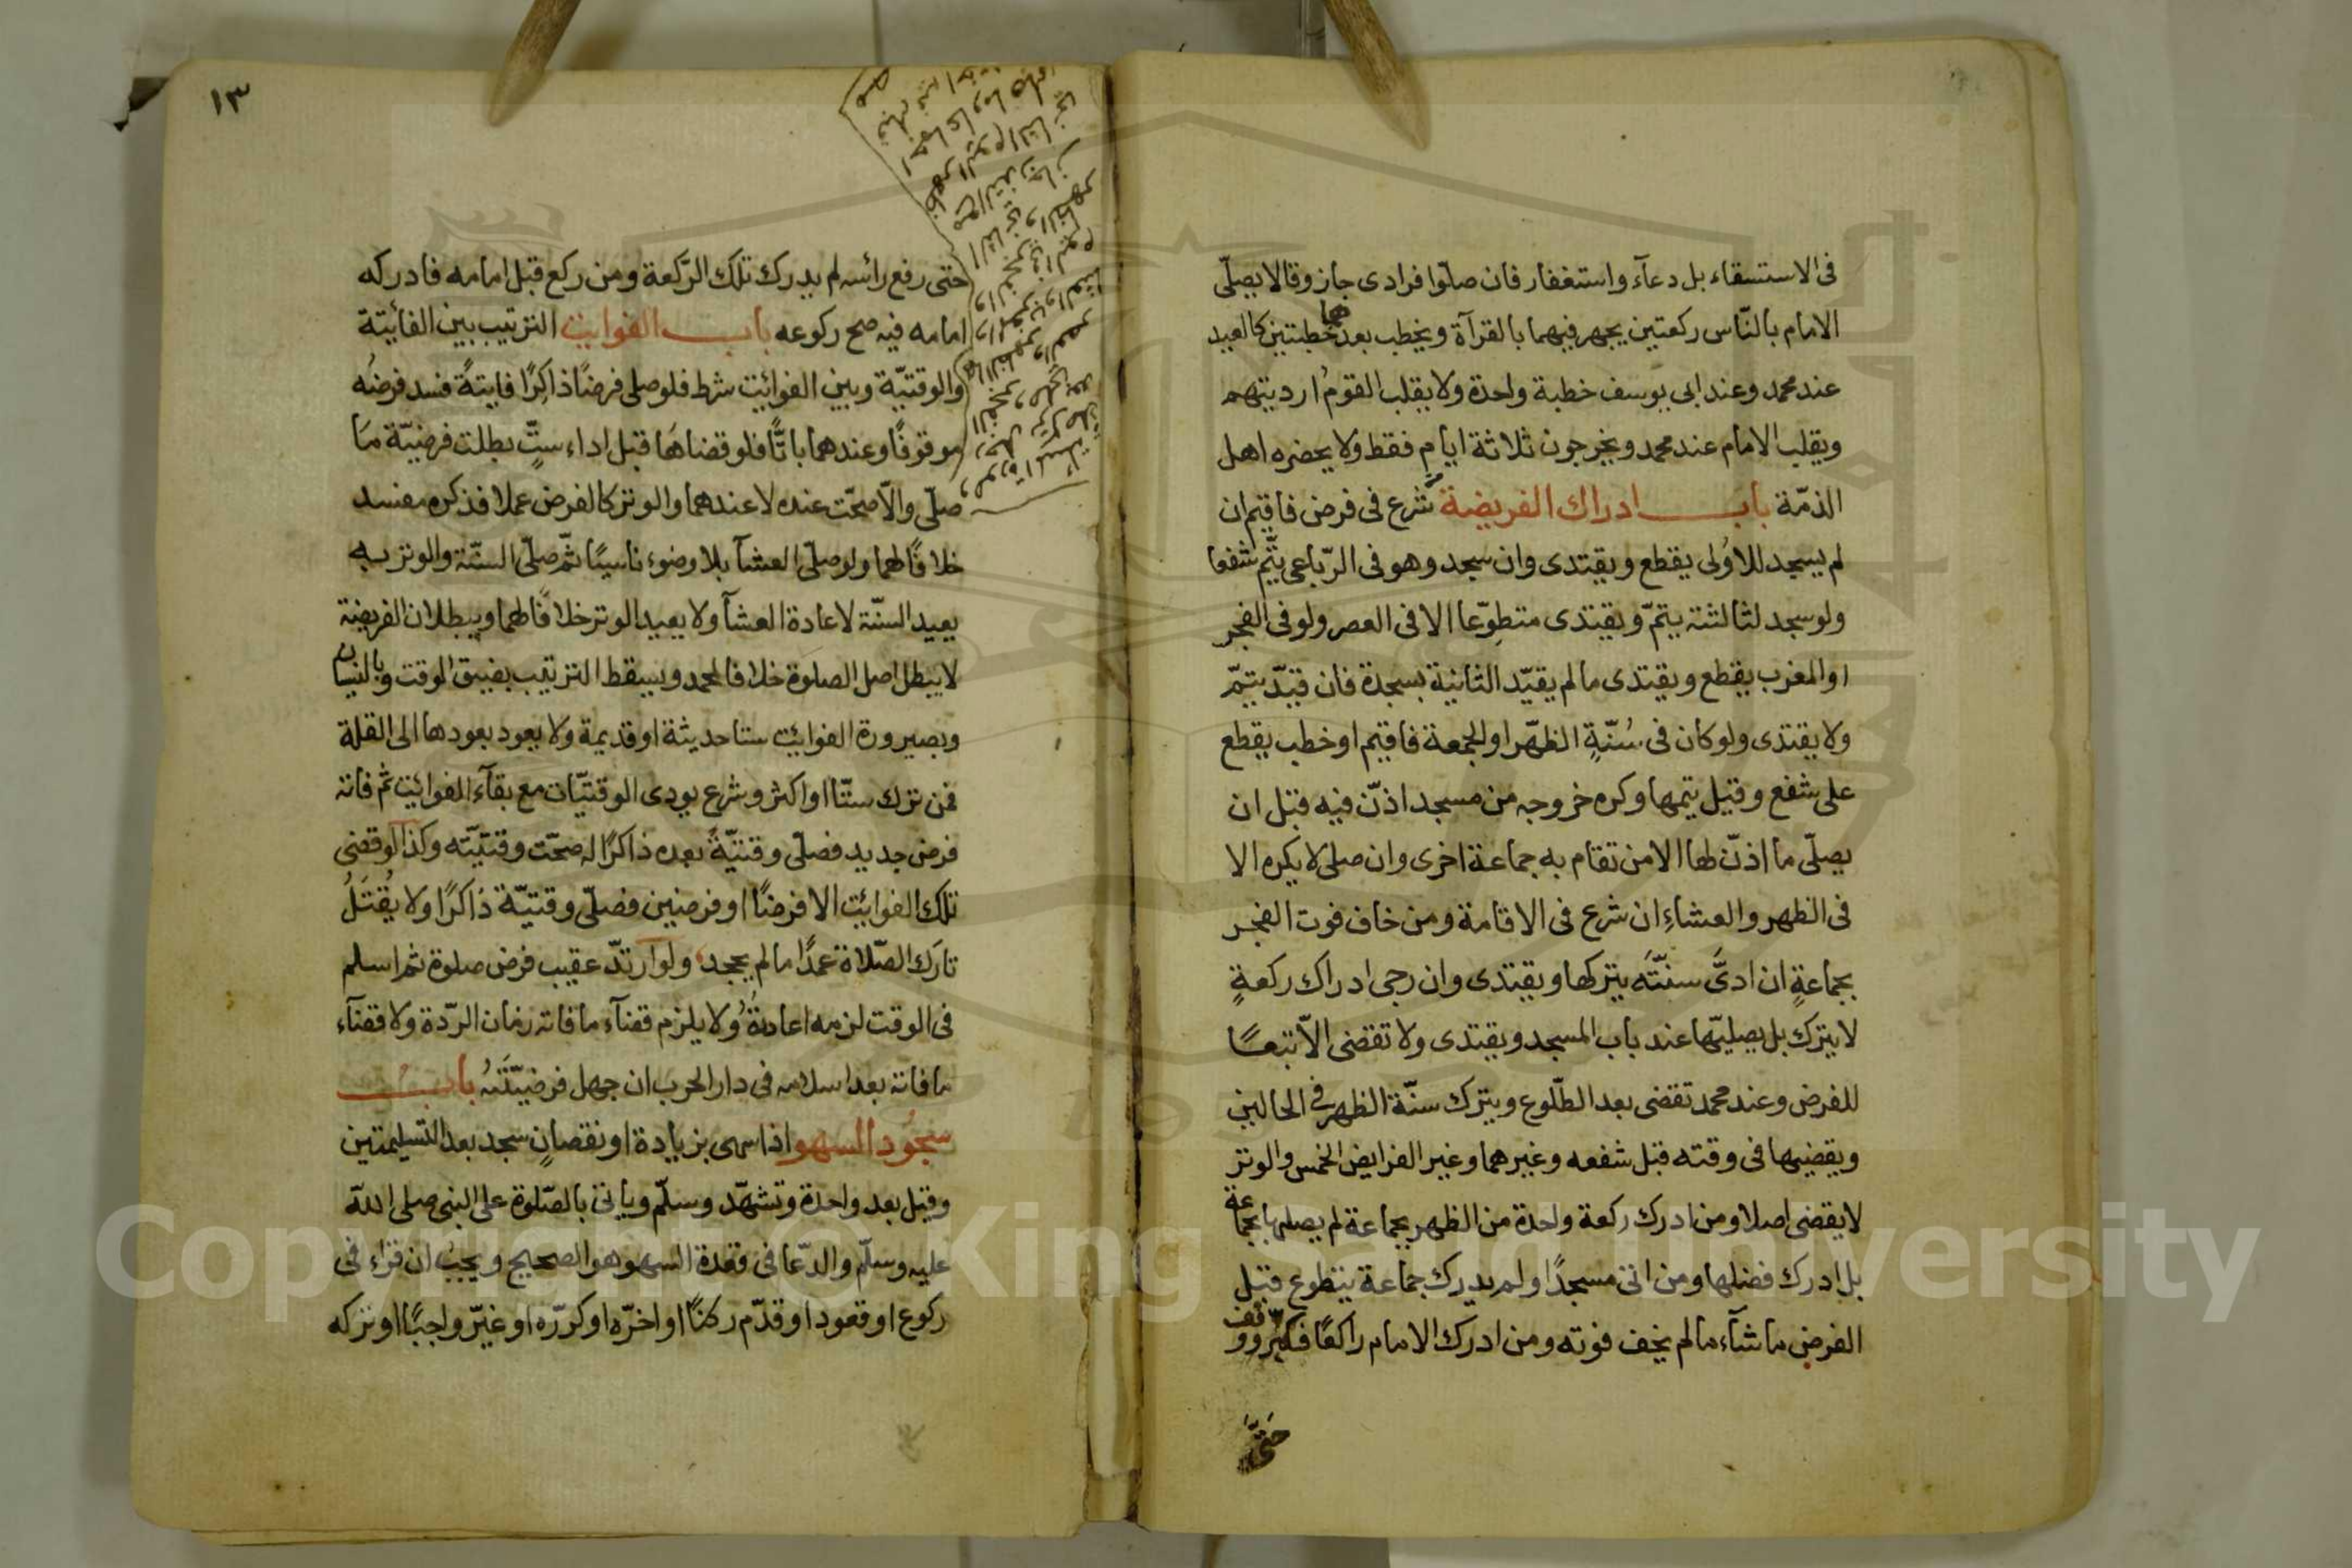 فى الاستسقاء بل دعآء واستغفار فان صلّوا فرادى جاز وقالا يصلّى
الامام بالنّاس ركعتين يجهر فيهما بالقرآة ويخطب بعدهما خطبتين كالعيد
عند محمد وعند ابى يوسف خطبة واحدة ولا يقلب القومُ ارديتهم
ويقلب الامام عند محمد ويخرجون ثلاثة ايام فقط ولا يحضره اهل
الذمّة باب ادراك الفريضة شرع فى فرض فاقيم ان
لم يسجد للاُولى يقطع ويقتدى وان سجد وهو فى الرّباعى يتّم شفعا
ولو سجد لثالثته يتمّ ويقتدى متطوّعا الا فى العصر ولو فى الفجر
او المغرب يقطع ويقتدى ما لم يقيّد الثانية بسجدة فان قيّد يتمّ
ولا يقتدى ولو كان فى سُنّةِ الظهر او الجمعة فاقيم او خطب يقطع
على شفع وقيل يتمها وكره خروجه من مسجد اذّن فيه قبل ان
يصلّى ما اذّن لها الا من تقام به جماعة اخرى وان صلى لا يكره الا
فى الظهر والعشاءِ ان شرع فى الاقامة ومن خاف فوت الفجر
بجماعةٍ ان ادىَّ سنّتَه يتركها ويقتدى وان رجى ادراك ركعةٍ
لا يترك بل يصليّها عند باب المسجد ويقتدى ولا تقضى الاّ تبعًا
للفرض وعند محمد تقضى بعد الطّلوع ويترك سنّة الظهر فى الحالين
ويقضيها فى وقته قبل شفعه وغيرهما وغير الفرايض الخمس والوتر
لا يقضى اصلا ومن ادرك ركعة واحدة من الظهر بجماعة لم يصلها بجماعة
بل ادرك فضلها ومن اتى مسجدًا ولم يدرك جماعة يتطوع قبل
الفرض ما شآء ما لم يخف فوته ومن ادرك الامام راكعًا فكبّر ووقف
حَتَّىَ
١٣
حتى رفع رائسه لم يدرك تلك الرّكعة ومن ركع قبل امامه فادركه
امامه فيه صح ركوعه باب الفوايت الترتيب بين الفائيتة
والوقتيّة وبين الفوائيت شرط فلو صلى فرضًا ذاكِرًا فايتةً فسد فرضهُ
موقوفًا وعندهما باتًّا فلو قضاهَا قبل اداء ستٍّ بطلت فرضيّة مَا
صلّى والاّ صحّت عنده لا عندهما والوتر كالفرض عملا فذكره مفسد
خلافًا لهما ولو صلّى العشآ بلا وضوء ناسيًا ثمّ صلّى السنّة والوتر به
يعيد السنّة لاعادة العشآ ولا يعيد الوتر خلافًا لهما وببطلان الفريضة
لا يبطل اصل الصلوة خلافا لمحمد ويسقط الترتيب بضيق الوقت وبالنسيان
وبصيرورة الفوائيت ستا حديثة او قديمة ولا يعود بعودها الى القلة
فمن ترك ستّا او اكثر وشرع يودى الوقتيّات مع بقآء الفوائيت ثم فاته
فرض جديد فصلّى وقتيّةً بعده ذاكرًا له صحّت وقتيّته وكذا لو قضى
تلك الفوائيت الا فرضًا او فرضين فصلّى وقتيّة ذاكرًا ولا يُقتَلُ
تارَك الصّلاة عَمدًا ما لم يجحد ولو ارتدّ عقيب فرض صلوة ثم اسلم
فى الوقت لزمه اعادتهُ ولا يلزم قضآء ما فاته زمان الردّة ولا قضآء
ما فاته بعد اسلامه فى دار الحرب ان جهل فرضيّتَهُ بابُ
سجُود السهو اذا سهى بزيادة او نقصانٍ سجد بعد التسليمتين
وقيل بعد واحدة وتشهّد وسلّم وياتى بالصّلوة على النبى صلى الله
عليه وسلّم والدّعا فى قعدة السهو هو الصحيح ويجبُ ان قراء فى
ركوع او قعود او قدّم ركنًا او اخرّه او كررّه او غيّر واجبًا او تركه
Copyright © King Saud University